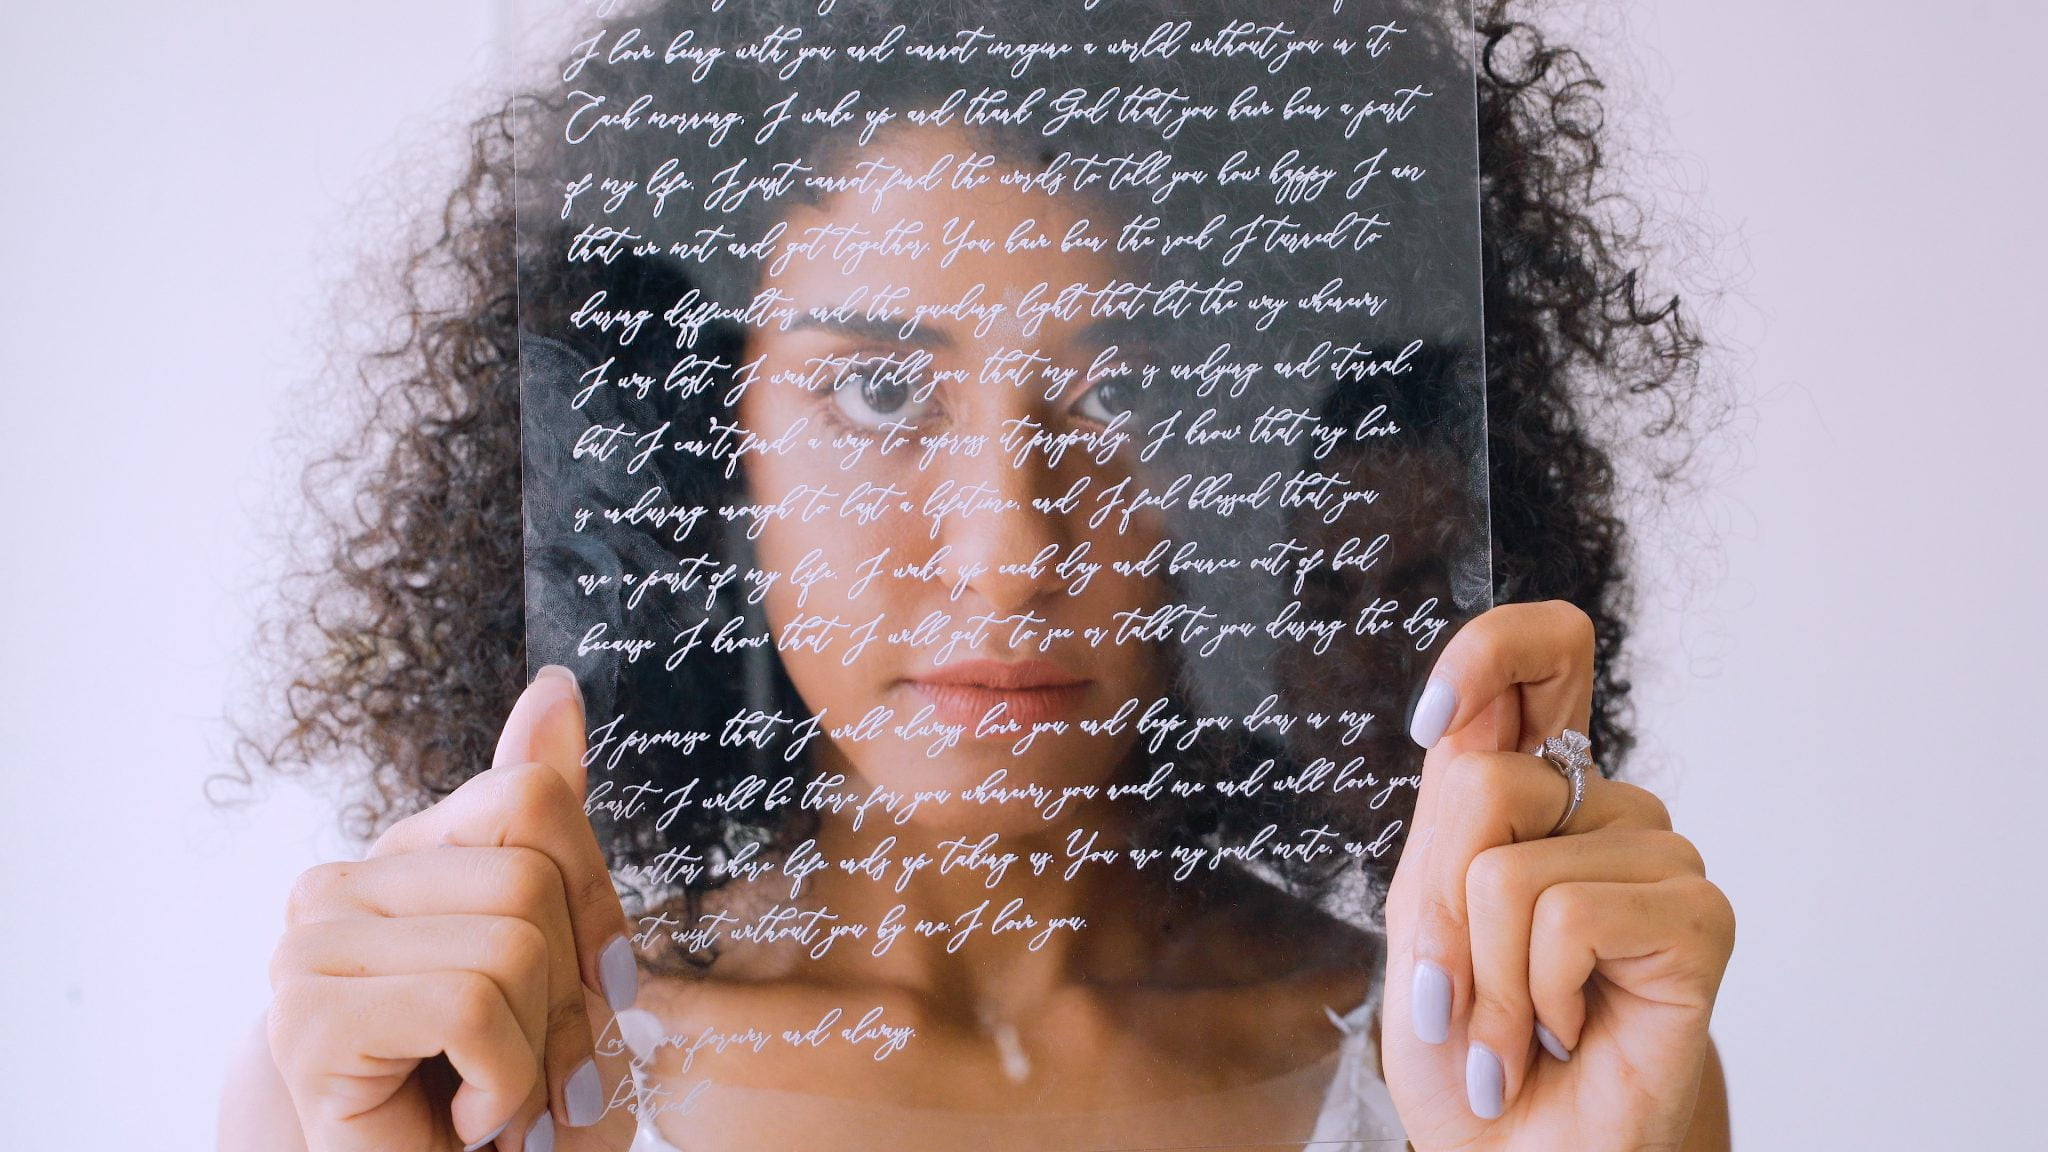 I love being with you and cannot imagine a world without you in it.
Each morning, I wake up and thank God that you have been a part
of my life. I just cannot find the words to tell you how happy I am
that we met and got together. You have been the rock I turned to
during difficulties and the guiding light that lit the way wherever
I was lost. I want to tell you that my love is undying and eternal,
but I can't find a way to express it properly. I know that my love
is enduring enough to last a lifetime, and I feel blessed that you
are a part of my life. I wake up each day and bounce out of bed
because I know that I will get to see or talk to you during the day
I promise that I will always love you and keep you dear in my
heart. I will be there for you whenever you need me and will love you
matter where life ends up taking us. You are my soul mate, and I
exist without you by me. I love you.
Love you forever and always.
Patrick